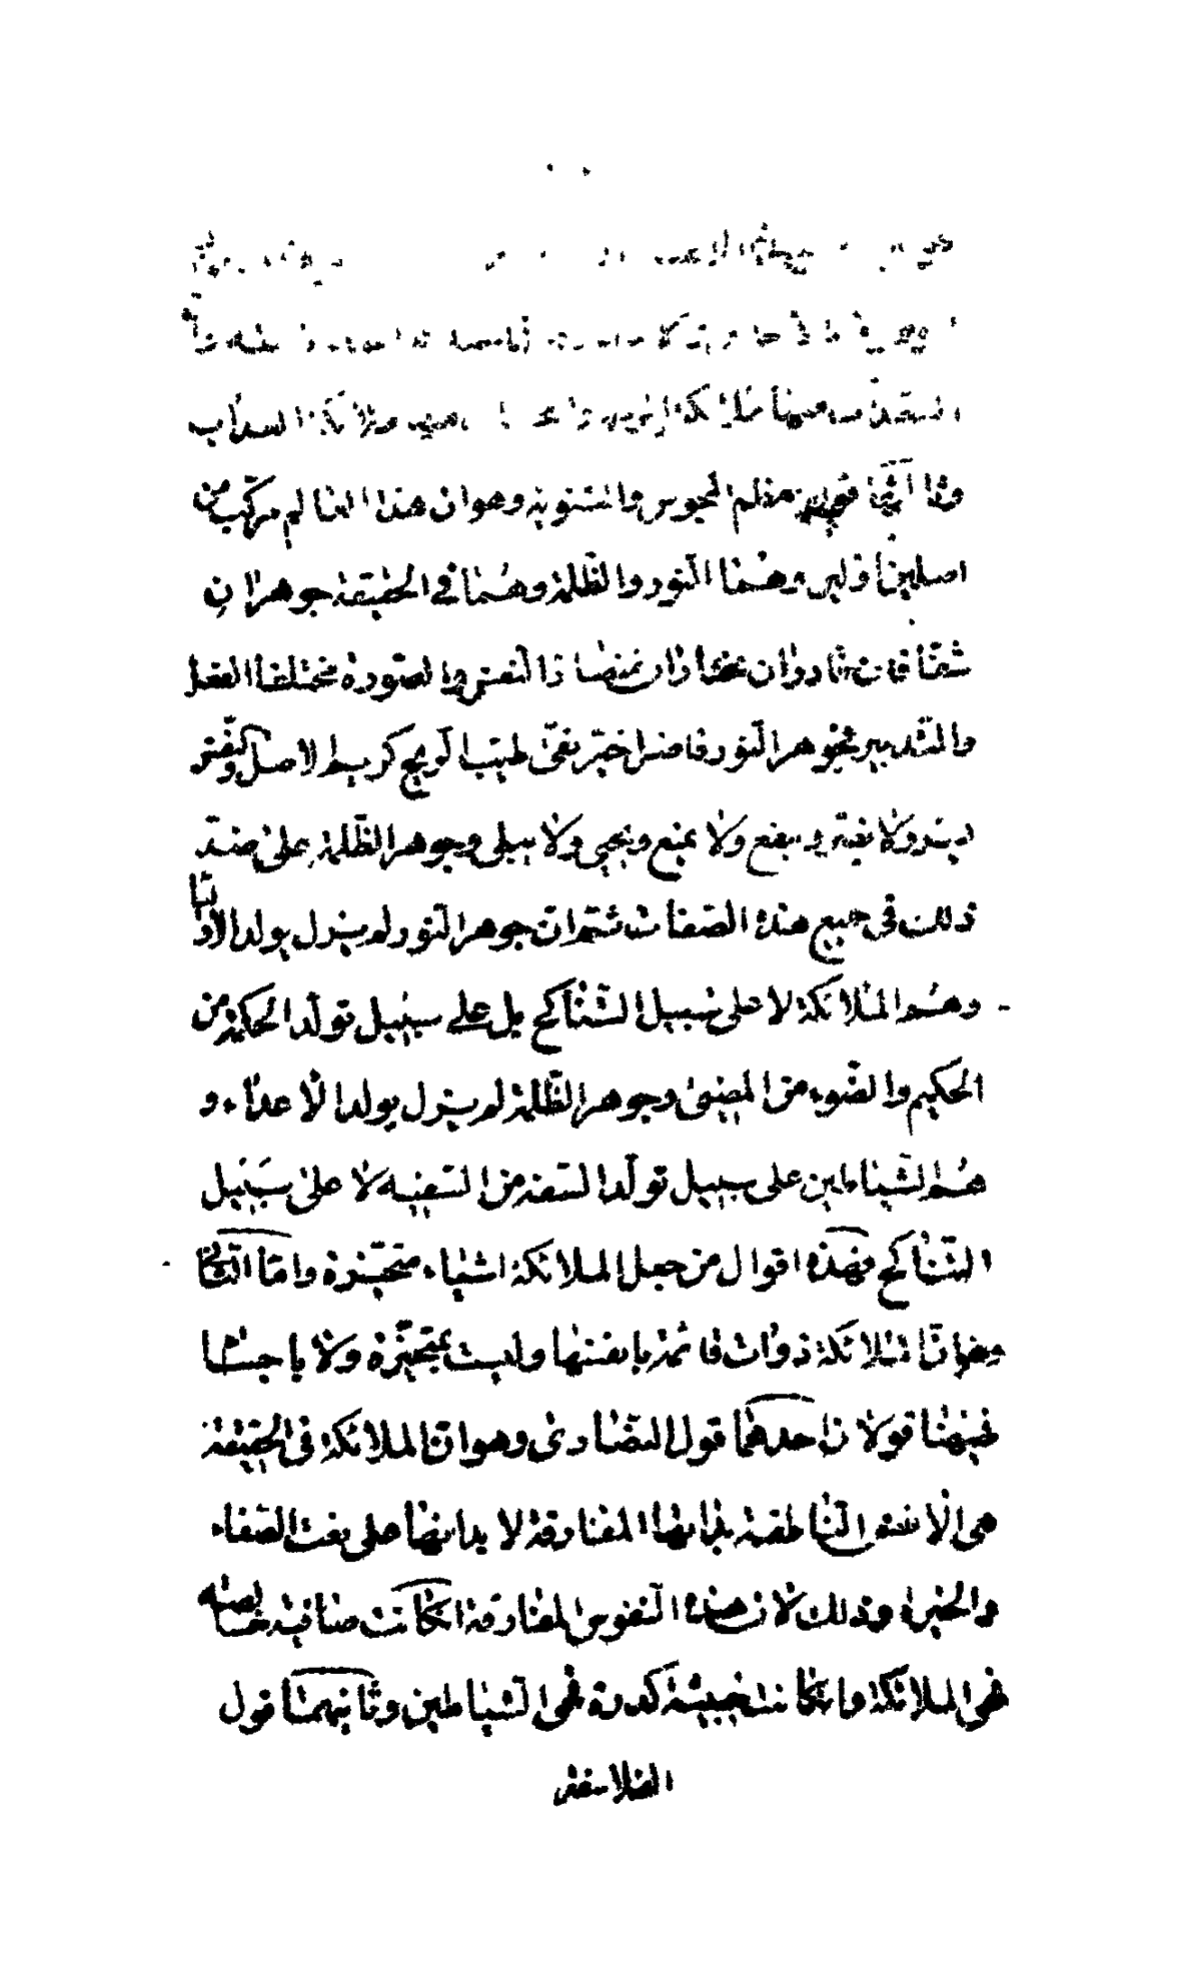 ملائكة الرحمة ملائكة العذاب
وثالثها قول معظم المجوس والثنوية وهو ان هذا العالم مركب من
اصلين ازليين وهما النور والظلمة وهما في الحقيقة جوهران
شفافان مختاران قادران متضادا النفس والصورة مختلفا الفعل
والتدبير فجوهر النور فاضل خير نقى طيب الريح كريم الاصل والنفس
يسر ولا يضر وينفع ولا يمنع ويحيى ولا يبلى وجوهر الظلمة على ضد
ذلك في جميع هذه الصفات ثم ان جوهر النور لم يزل يولد الاوليا
وهم الملائكة لا على سبيل التناكح بل على سبيل تولد الحكمة من
الحكيم والضوء من المضيئ وجوهر الظلمة لم يزل يولد الاعداء و
هم الشياطين على سبيل تولد السفه من السفيه لا على سبيل
التناكح فهذه اقوال من جعل الملائكة اشياء متحيزة واما الثاني
وهو ان الملائكة ذوات قائمة بانفسها وليست بمتحيزة ولا باجسام
فههنا قولان احدهما قول النصارى وهو ان الملائكة في الحقيقة
هي الانفس الناطقة بذاتها المفارقة لابدانها على نعت الصفاء
والخير وذلك لان هذه النفوس المفارقة ان كانت صافية خالصة
فهي الملائكة وان كانت خبيثة كدرة فهي الشياطين وثانيهما قول
الفلاسفة